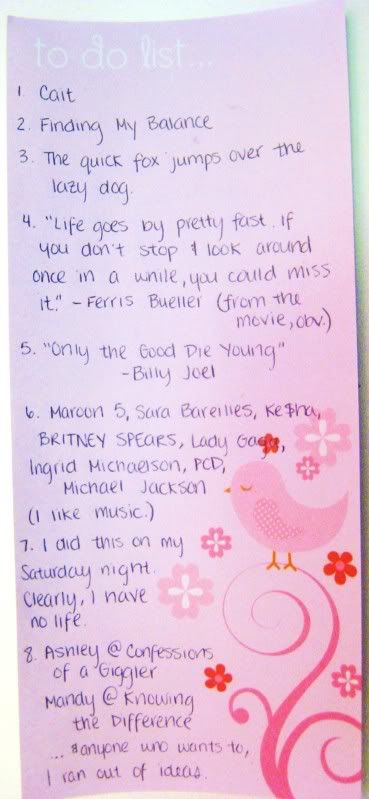 to do list...
1. Cait
2. Finding My Balance
3. The quick fox jumps over the
lazy dog.
4. "Life goes by pretty fast. If
you don't stop & look around
once in a while, you could miss
it." - Ferris Bueller (from the
movie, obv.)
5. "Only the Good Die Young"
- Billy Joel
6. Maroon 5, Sara Bareilles, Ke$ha,
BRITNEY SPEARS, Lady Gaga,
Ingrid Michaelson, PCD,
Michael Jackson
(I like music.)
7. I did this on my
Saturday night.
Clearly, I have
no life.
8. Ashley @ Confessions
of a Giggler
Mandy @ Knowing
the Difference
... & anyone who wants to,
I ran out of ideas.